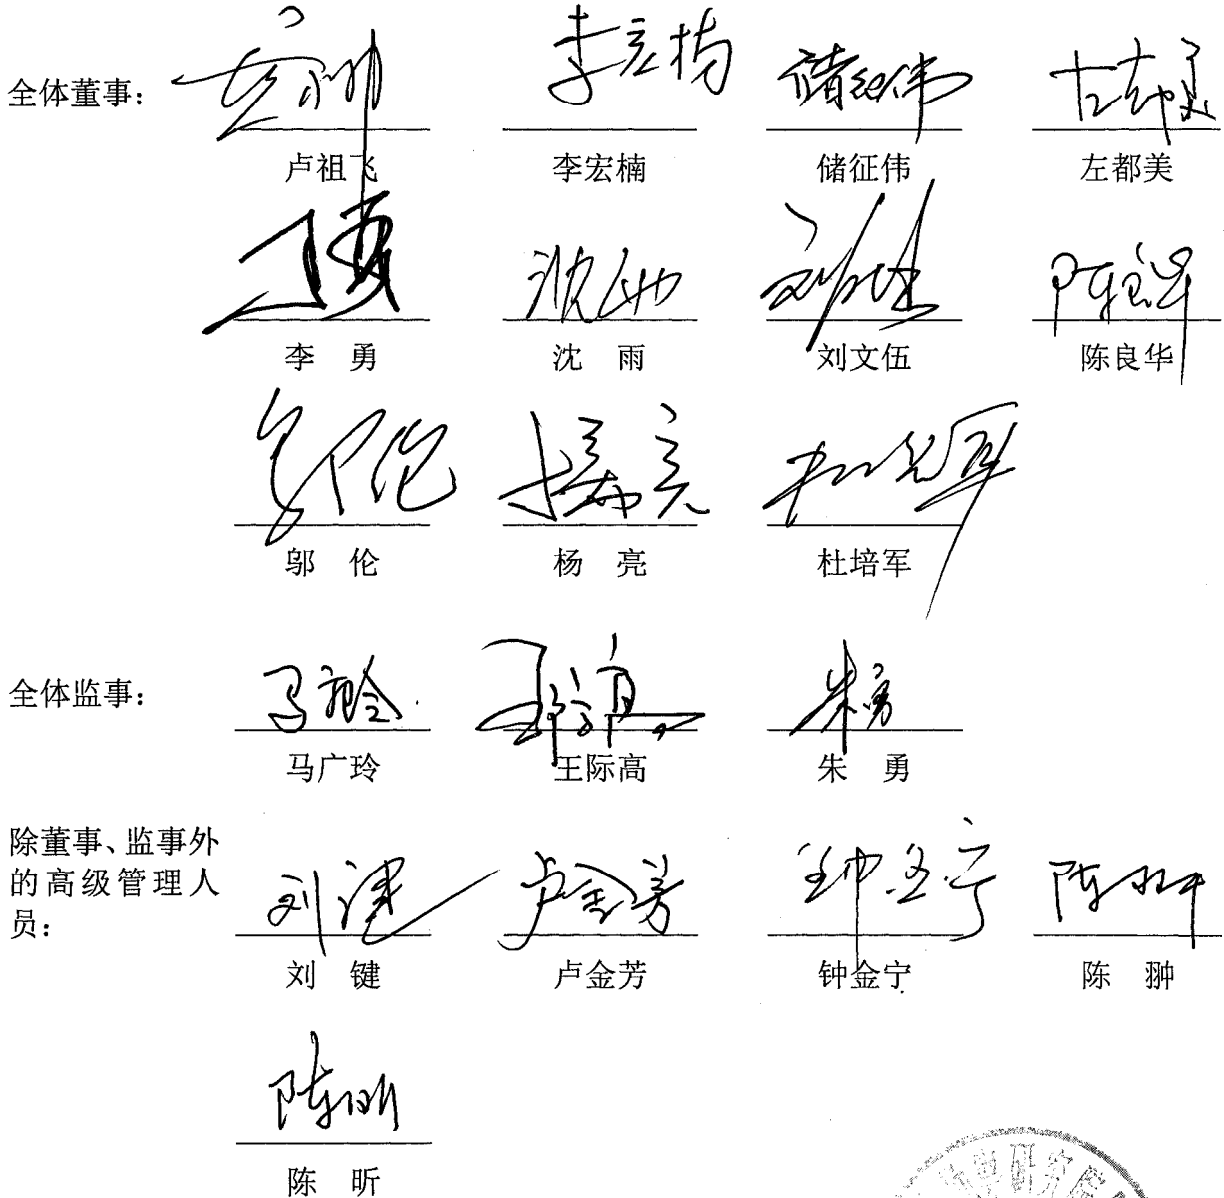 全体董事:
卢祖飞 李宏楠 储征伟 左都美
李 勇 沈 雨 刘文伍 陈良华
邬 伦 杨 亮 杜培军
全体监事:
马广玲 王际高 朱 勇
除董事、监事外
的高级管理人
员:
刘 键 卢金芳 钟金宁 陈 翀
陈 昕
研究院